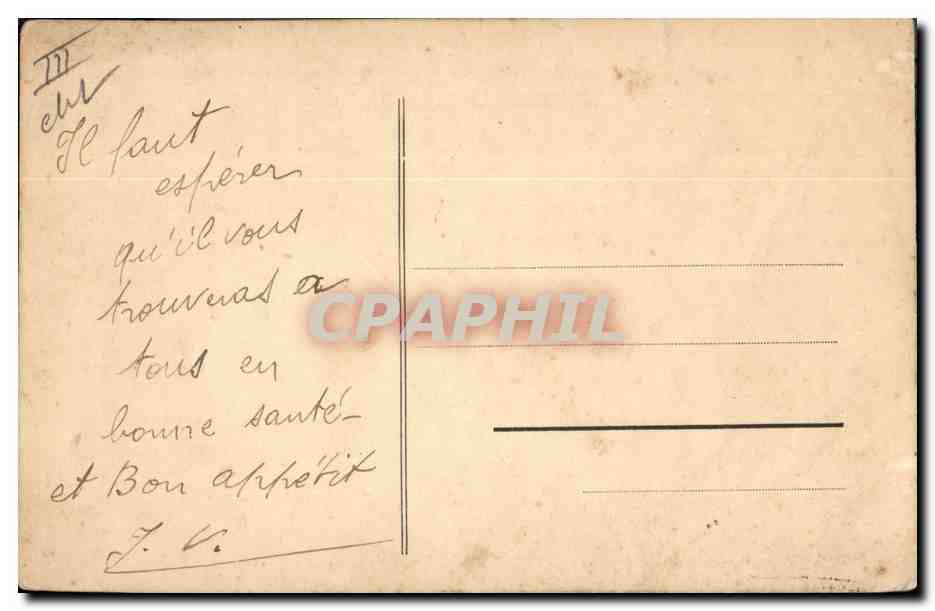 III
Il faut
espérer
qu'il vous
trouveras a
tous en
bonne santé-
et Bon appétit
J. V.
CPAPHIL